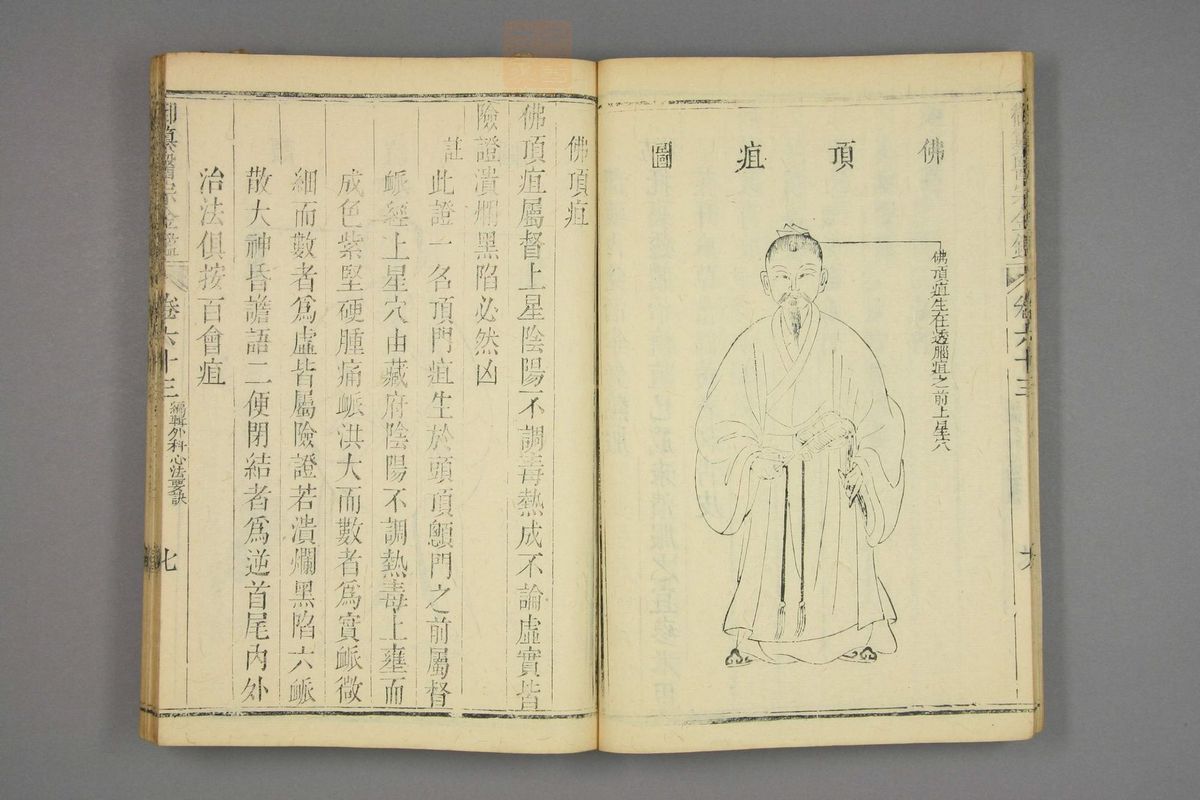 佛頂疽圖
佛頂疽生在透腦疽之前上星穴
佛頂疽
佛頂疽屬督上星陰陽不調毒熱成不論虛實皆
險證潰爛黑陷必然凶
註此證一名頂門疽生於頭頂顖門之前屬督
脈經上星穴由藏府陰陽不調熱毒上壅而
成色紫堅硬腫痛脈洪大而數者爲實脈微
細而數者爲虛皆屬險證若潰爛黑陷六脈
散大神昏譫語二便閉結者爲逆首尾內外
治法俱按百會疽
御纂醫宗金鑑
卷六十三
編輯外科心法要訣
七